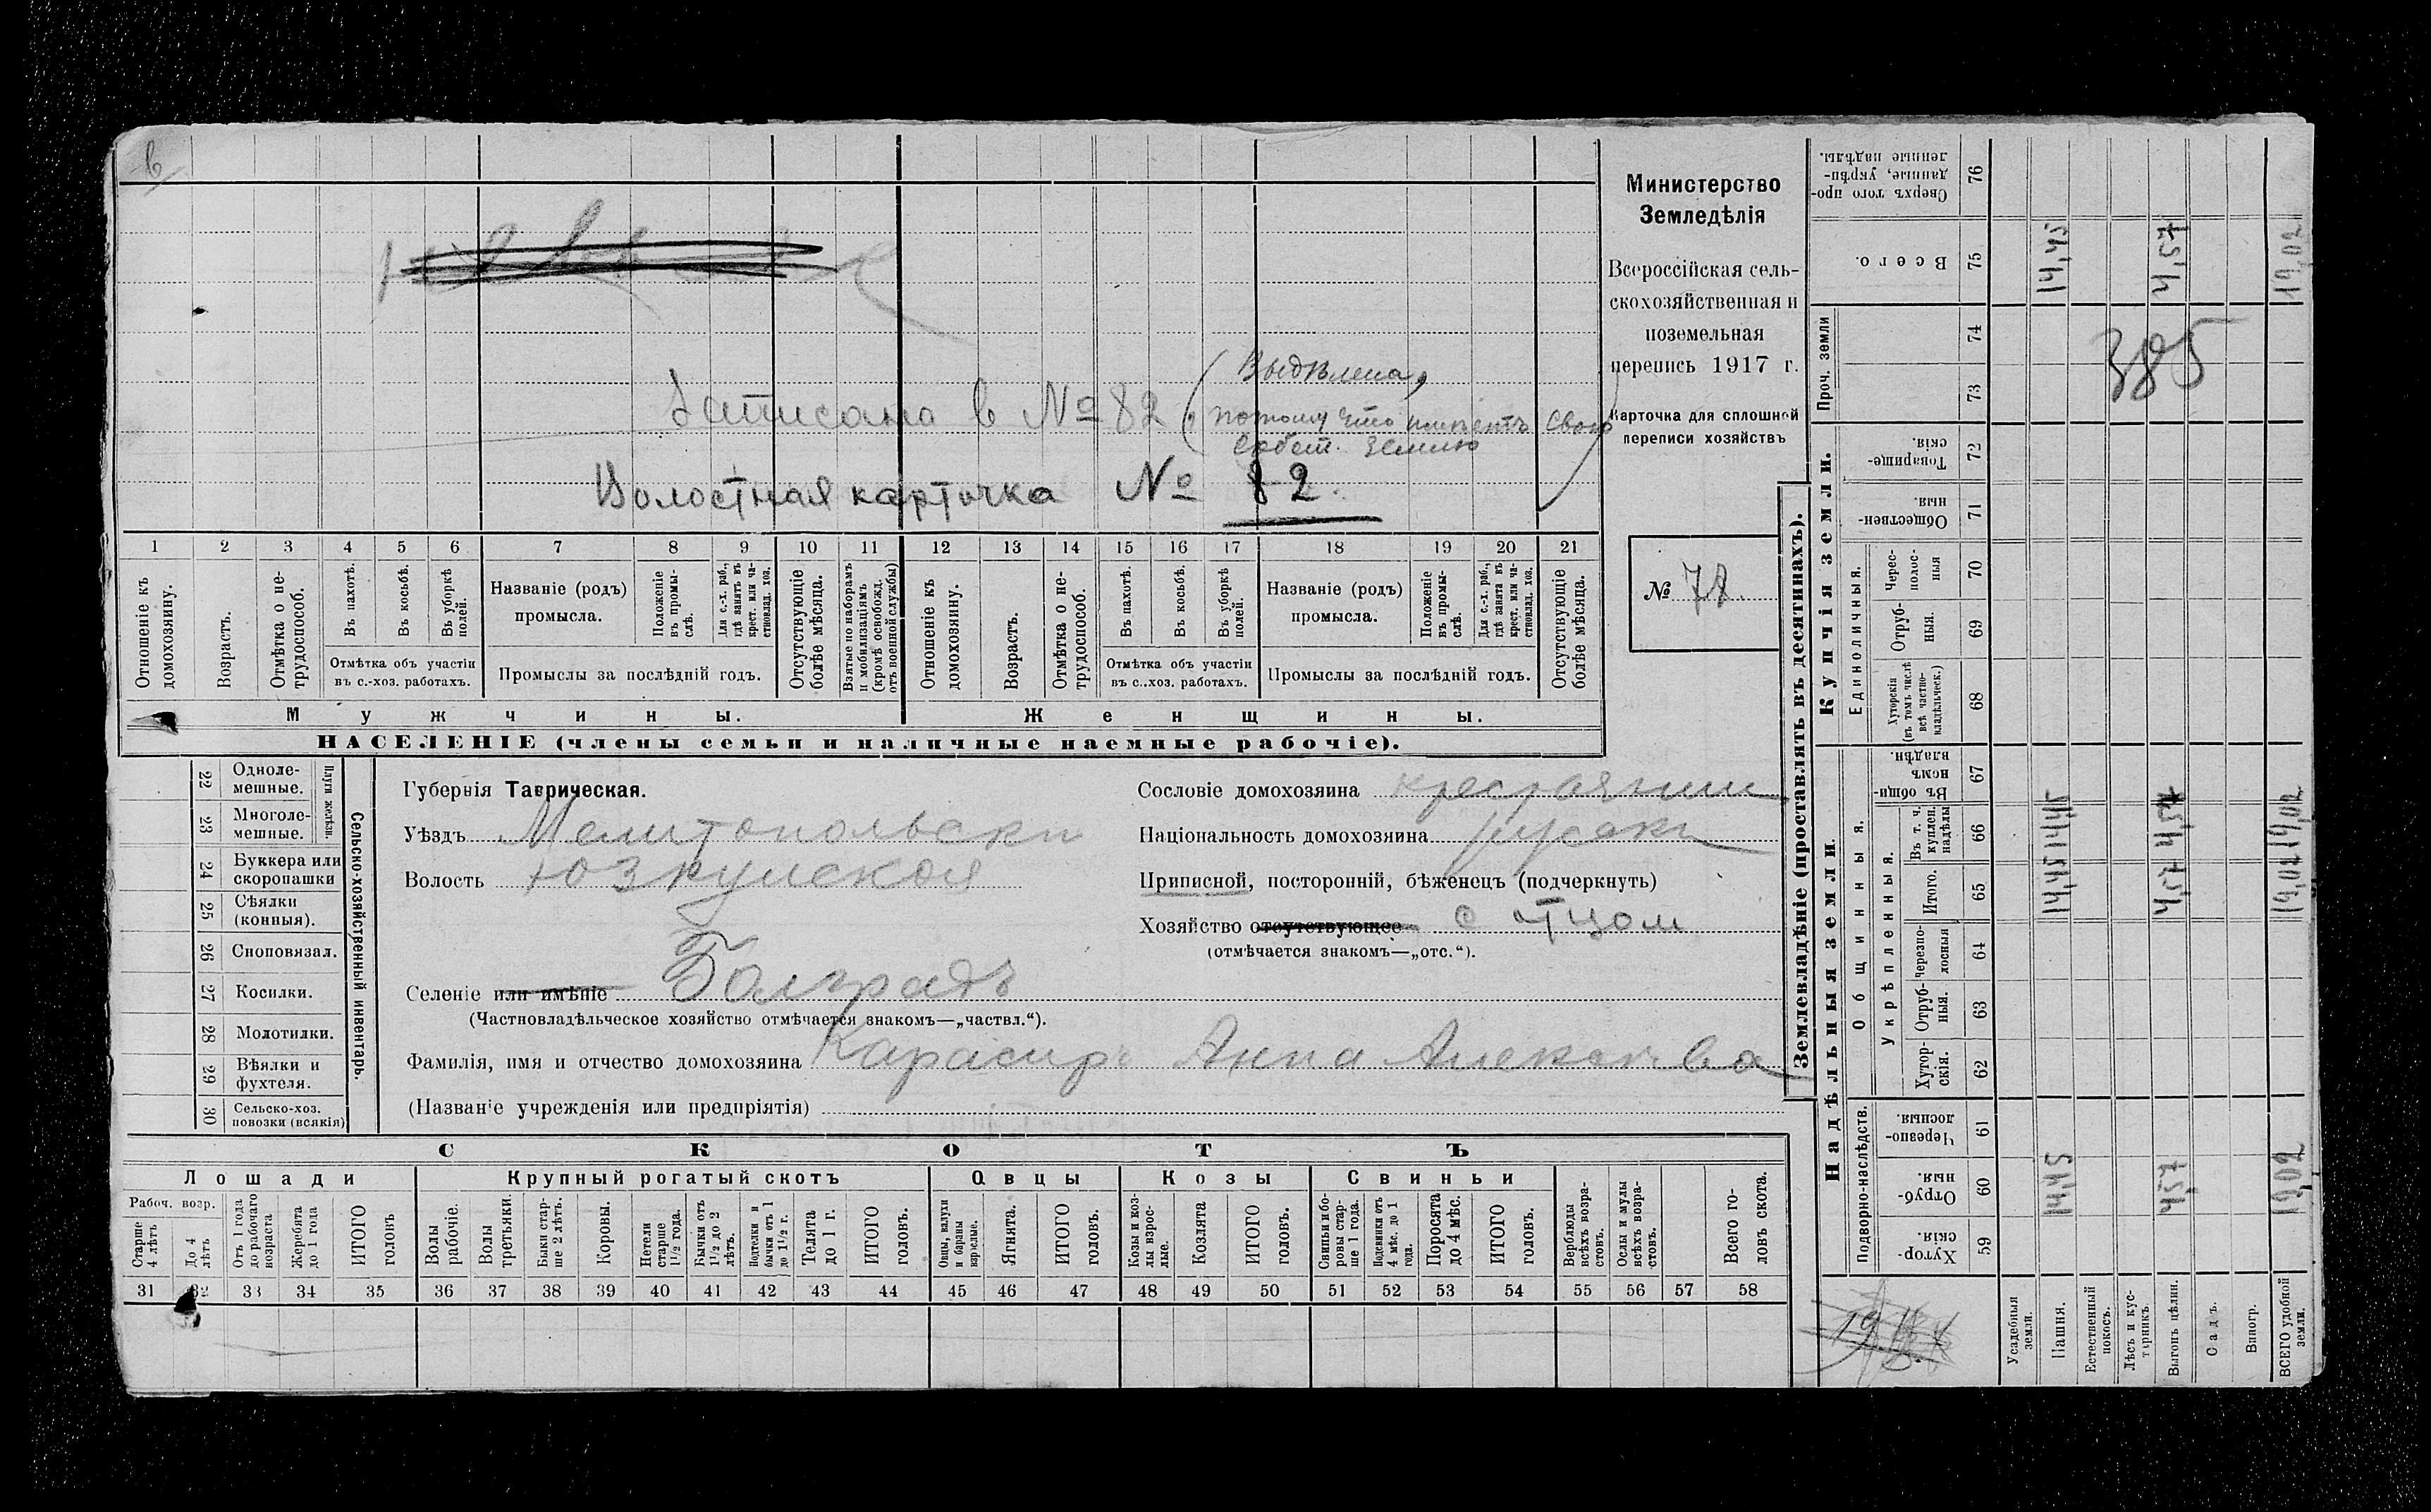 в
Записана в № 82, (Выдѣлена,
потому что имѣетъ свою
собст. землю)
Волостная карточка № 82.
1 2 3 4 5 6 7 8 9 10 11 12 13 14 15 16 17 18 19 20 21
Отношеніе къ домохозяину.
Возрастъ.
Отмѣтка о нетрудоспособ.
Въ пахотѣ.
Въ косьбѣ.
Въ уборкѣ полей.
Отмѣтка объ участіи
въ с.-хоз. работахъ.
Названіе (родъ)
промысла.
Положеніе въ промыслѣ.
Для с.-х. раб., гдѣ занятъ въ крест. или частновлад. хоз.
Промыслы за послѣдній годъ.
Отсутствующіе болѣе мѣсяца.
Взятые по наборамъ и мобилизаціямъ (кромѣ освобожд. отъ военной службы)
Отношеніе къ домохозяину.
Возрастъ.
Отмѣтка о нетрудоспособ.
Въ пахотѣ.
Въ косьбѣ.
Въ уборкѣ полей.
Отмѣтка объ участіи
въ с.-хоз. работахъ.
Названіе (родъ)
промысла.
Положеніе въ промыслѣ.
Для с.-х. раб., гдѣ занята въ крест. или частновлад. хоз.
Промыслы за послѣдній годъ.
Отсутствующіе болѣе мѣсяца.
Мужчины.
Женщины.
НАСЕЛЕНІЕ (члены семьи и наличные наемные рабочіе).
Министерство
Земледѣлія
Всероссійская сель-
скохозяйственная и
поземельная
перепись 1917 г.
Карточка для сплошной
переписи хозяйствъ
№ 78.
22 Однолемешные.
23 Многолемешные.
Плуги желѣзн.
24 Буккера или скоропашки
25 Сѣялки (конныя).
26 Сноповязал.
27 Косилки.
28 Молотилки.
29 Вѣялки и фухтеля.
30 Сельско-хоз. повозки (всякія)
Сельско-хозяйственный инвентарь.
Губернія Таврическая.
Уѣздъ Мелитопольски
Волость Юзкуйская
Селеніе или имѣніе Болградъ
(Частновладѣльческое хозяйство отмѣчается знакомъ—„частвл.“).
Фамилія, имя и отчество домохозяина Карасиръ Анна Алексѣева
(Названіе учрежденія или предпріятія)
Сословіе домохозяина крестьянин
Національность домохозяина русски
Приписной, посторонній, бѣженецъ (подчеркнуть)
Хозяйство отсутствующее с отцом
(отмѣчается знакомъ—„отс.“).
СКОТЪ
Лошади
Рабоч. возр.
Старше 4 лѣтъ
До 4 лѣтъ
Отъ 1 года до рабочаго возраста
Жеребята до 1 года
ИТОГО головъ
Крупный рогатый скотъ
Волы рабочіе.
Волы третьяки.
Быки старше 2 лѣтъ.
Коровы.
Нетели старше 1½ года.
Бычки отъ 1½ до 2 лѣтъ.
Подтелки и бычки отъ 1 до 1½ г.
Телята до 1 г.
ИТОГО головъ.
Овцы
Овцы, валухи и бараны взрослые.
Ягнята.
ИТОГО головъ.
Козы
Козы и козлы взрослые.
Козлята
ИТОГО головъ.
Свиньи
Свиньи и боровы старше 1 года.
Подсвинки отъ 4 мѣс. до 1 года.
Поросята до 4 мѣс.
ИТОГО головъ.
Верблюды всѣхъ возрастовъ.
Ослы и мулы всѣхъ возрастовъ.
Всего головъ скота.
31 32 33 34 35 36 37 38 39 40 41 42 43 44 45 46 47 48 49 50 51 52 53 54 55 56 57 58
Землевладѣніе (проставлять въ десятинахъ).
Надѣльныя земли.
Подворно-наслѣдств.
Хуторскія. 59
Отрубныя. 60
Черезполосныя. 61
Общинныя.
Укрѣпленныя.
Хуторскія. 62
Отрубныя. 63
Черезполосныя 64
Итого. 65
Въ т. ч. куплен. надѣлы 66
Въ общинномъ владѣн. 67
Купчія земли.
Единоличныя.
Хуторскія (въ томъ числѣ всѣ частновладѣльческ.) 68
Отрубныя. 69
Чересполосныя 70
Общественныя 71
Товарищескія. 72
Проч. земли
73
74
Всего. 75
Сверхъ того проданные, укрѣпленные надѣлы. 76
Усадебныя земли.
Пашня. 14,45 14,45 14,45 14,45
Естественный покосъ.
Лѣсъ и кустарникъ.
Выгонъ цѣлин. 4,57 4,57 4,57 4,57
Садъ.
Виногр.
ВСЕГО удобной земли. 19,02 19,02 19,02 19,02
385